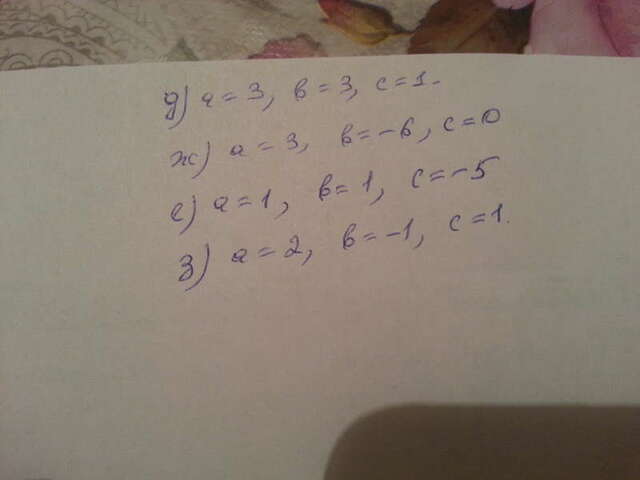 д) a=3, b=3, c=1.
ж) a=3, b=-6, c=0
е) a=1, b=1, c=-5
з) a=2, b=-1, c=1.